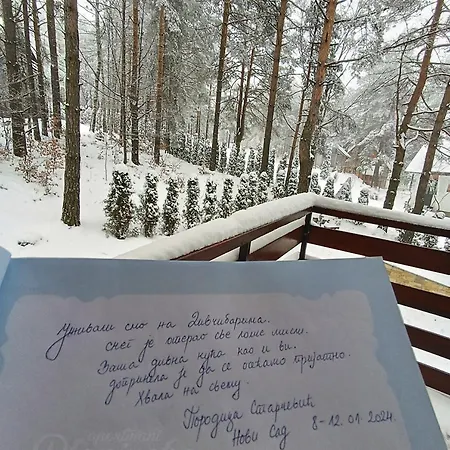 Уживали смо на Дивчибарима.
Снег је отерао све лоше мисли.
Ваша дивна кућа као и ви.
допринела је да се осећамо пријатно.
Хвала на свему.
Породица Старчевић
Нови Сад
8-12.01.2024.
apartmani